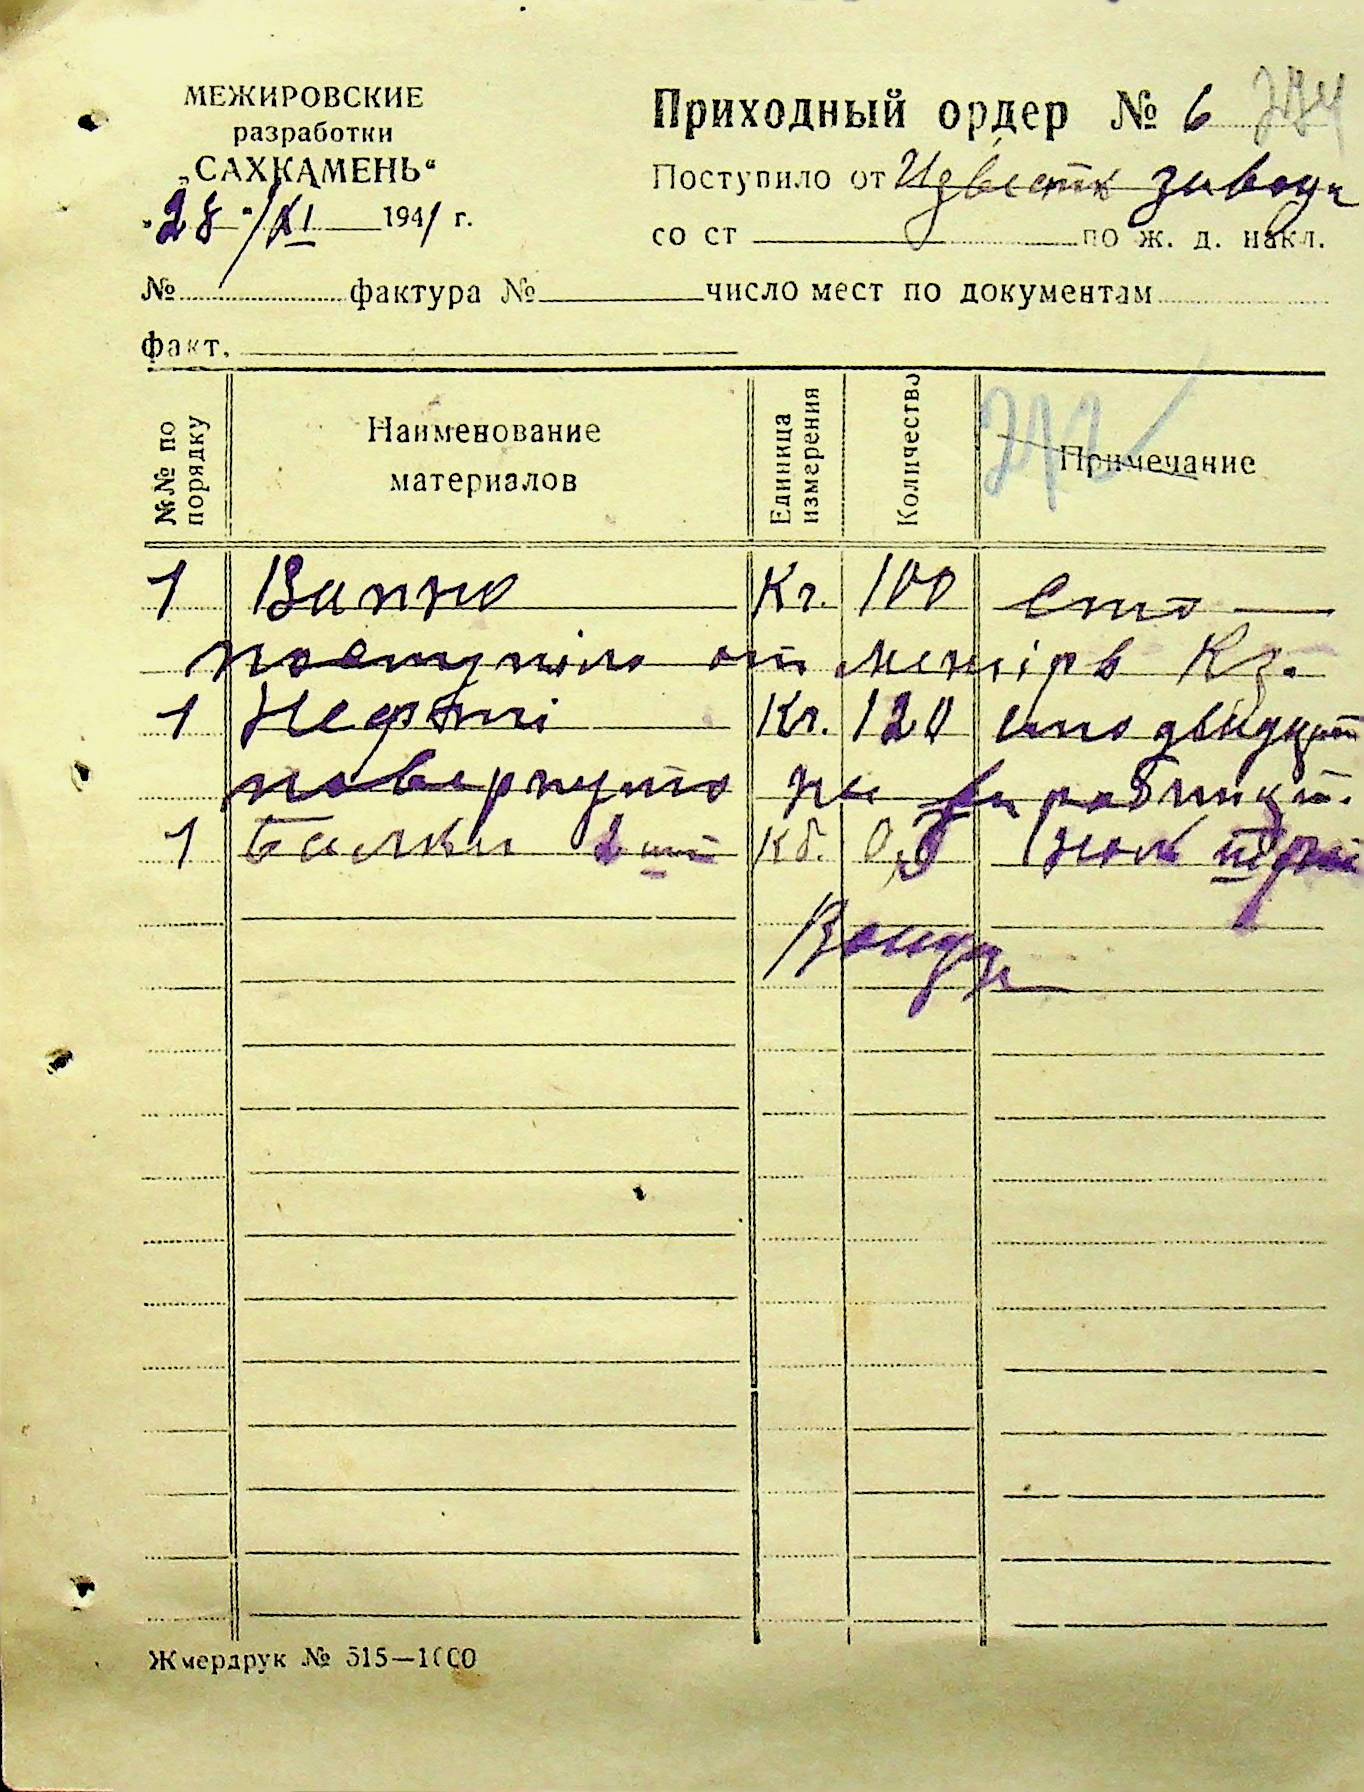 МЕЖИРОВСКИЕ
разработки
„САХКАМЕНЬ“
„28“/XI 1941 г.
Приходный ордер № 6 274
Поступило от Известк завода
со ст по ж. д. накл.
№ фактура № число мест по документам
факт.
№№ по порядку Наименование материалов Единица измерения Количество Примечание
272
1 Вапно Кг. 100 сто
поступило от Межірв Кз.
1 Нефті Кг. 120 сто двидцят
повернуто на
1 Балки 2 шт Кб. 0,3 Ноль
Жмердрук № 515—1000